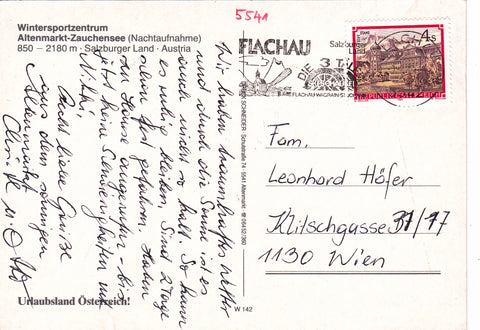 5541
Wintersportzentrum
Altenmarkt-Zauchensee (Nachtaufnahme)
850 – 2180 m · Salzburger Land · Austria
Wir haben traumhaftes Wetter
und durch die Sonne ist es
auch nicht so kalt. So kann
es ruhig bleiben. Sind 2 Tage
schon fest gefahren. Haben
zu Hause angerufen - bis
jetzt keine Schwierigkeiten mit
Recht liebe Grüße
aus dem sonnigen
Altenmarkt
u. Otto
Urlaubsland Österreich!
SCHNEIDER · Schulstraße 74 · 5541 Altenmarkt
W 142
FLACHAU
Salzburger
Land
DIE
3 T
FLACHAU-WAGRAIN-ST. JO
4 S
Fam.
Leonhard Höfer
Klitschgasse 37/17
1130 Wien